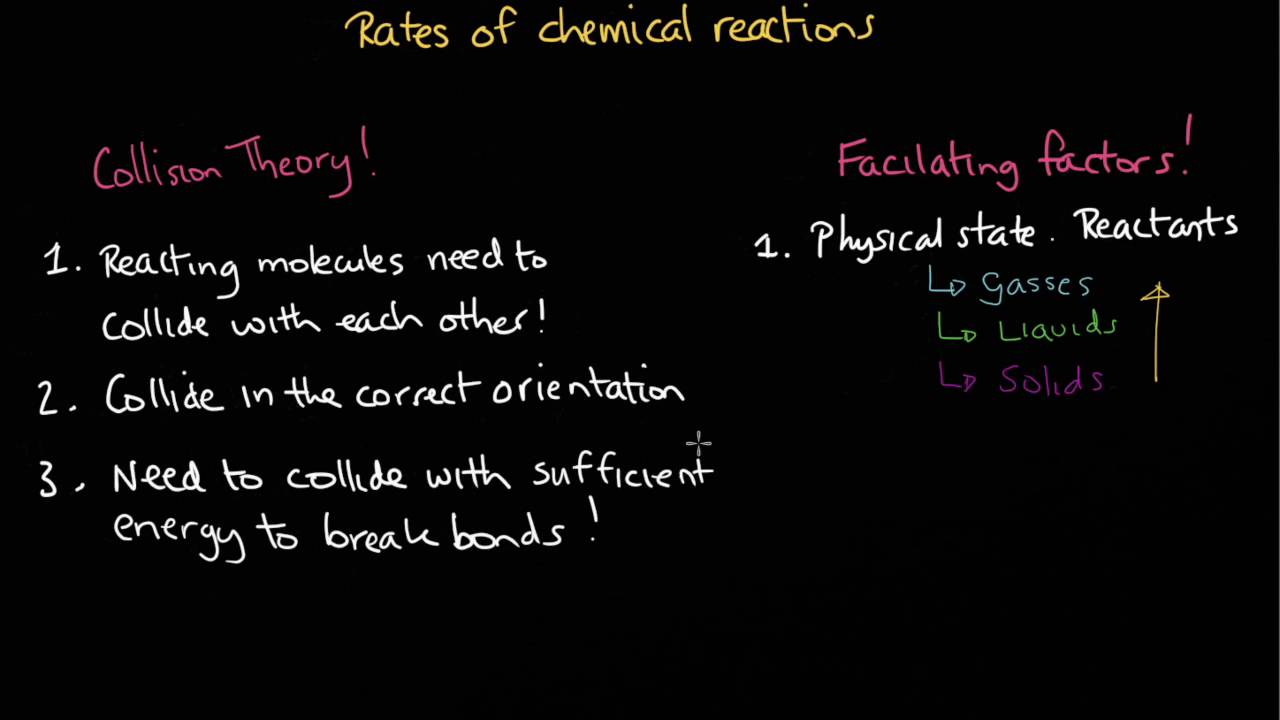 Rates of chemical reactions
Collision Theory!
1. Reacting molecules need to
collide with each other!
2. Collide in the correct orientation
3. Need to collide with sufficient
energy to break bonds!
Facilating factors!
1. Physical state. Reactants
↳ Gasses
↳ Liquids
↳ Solids